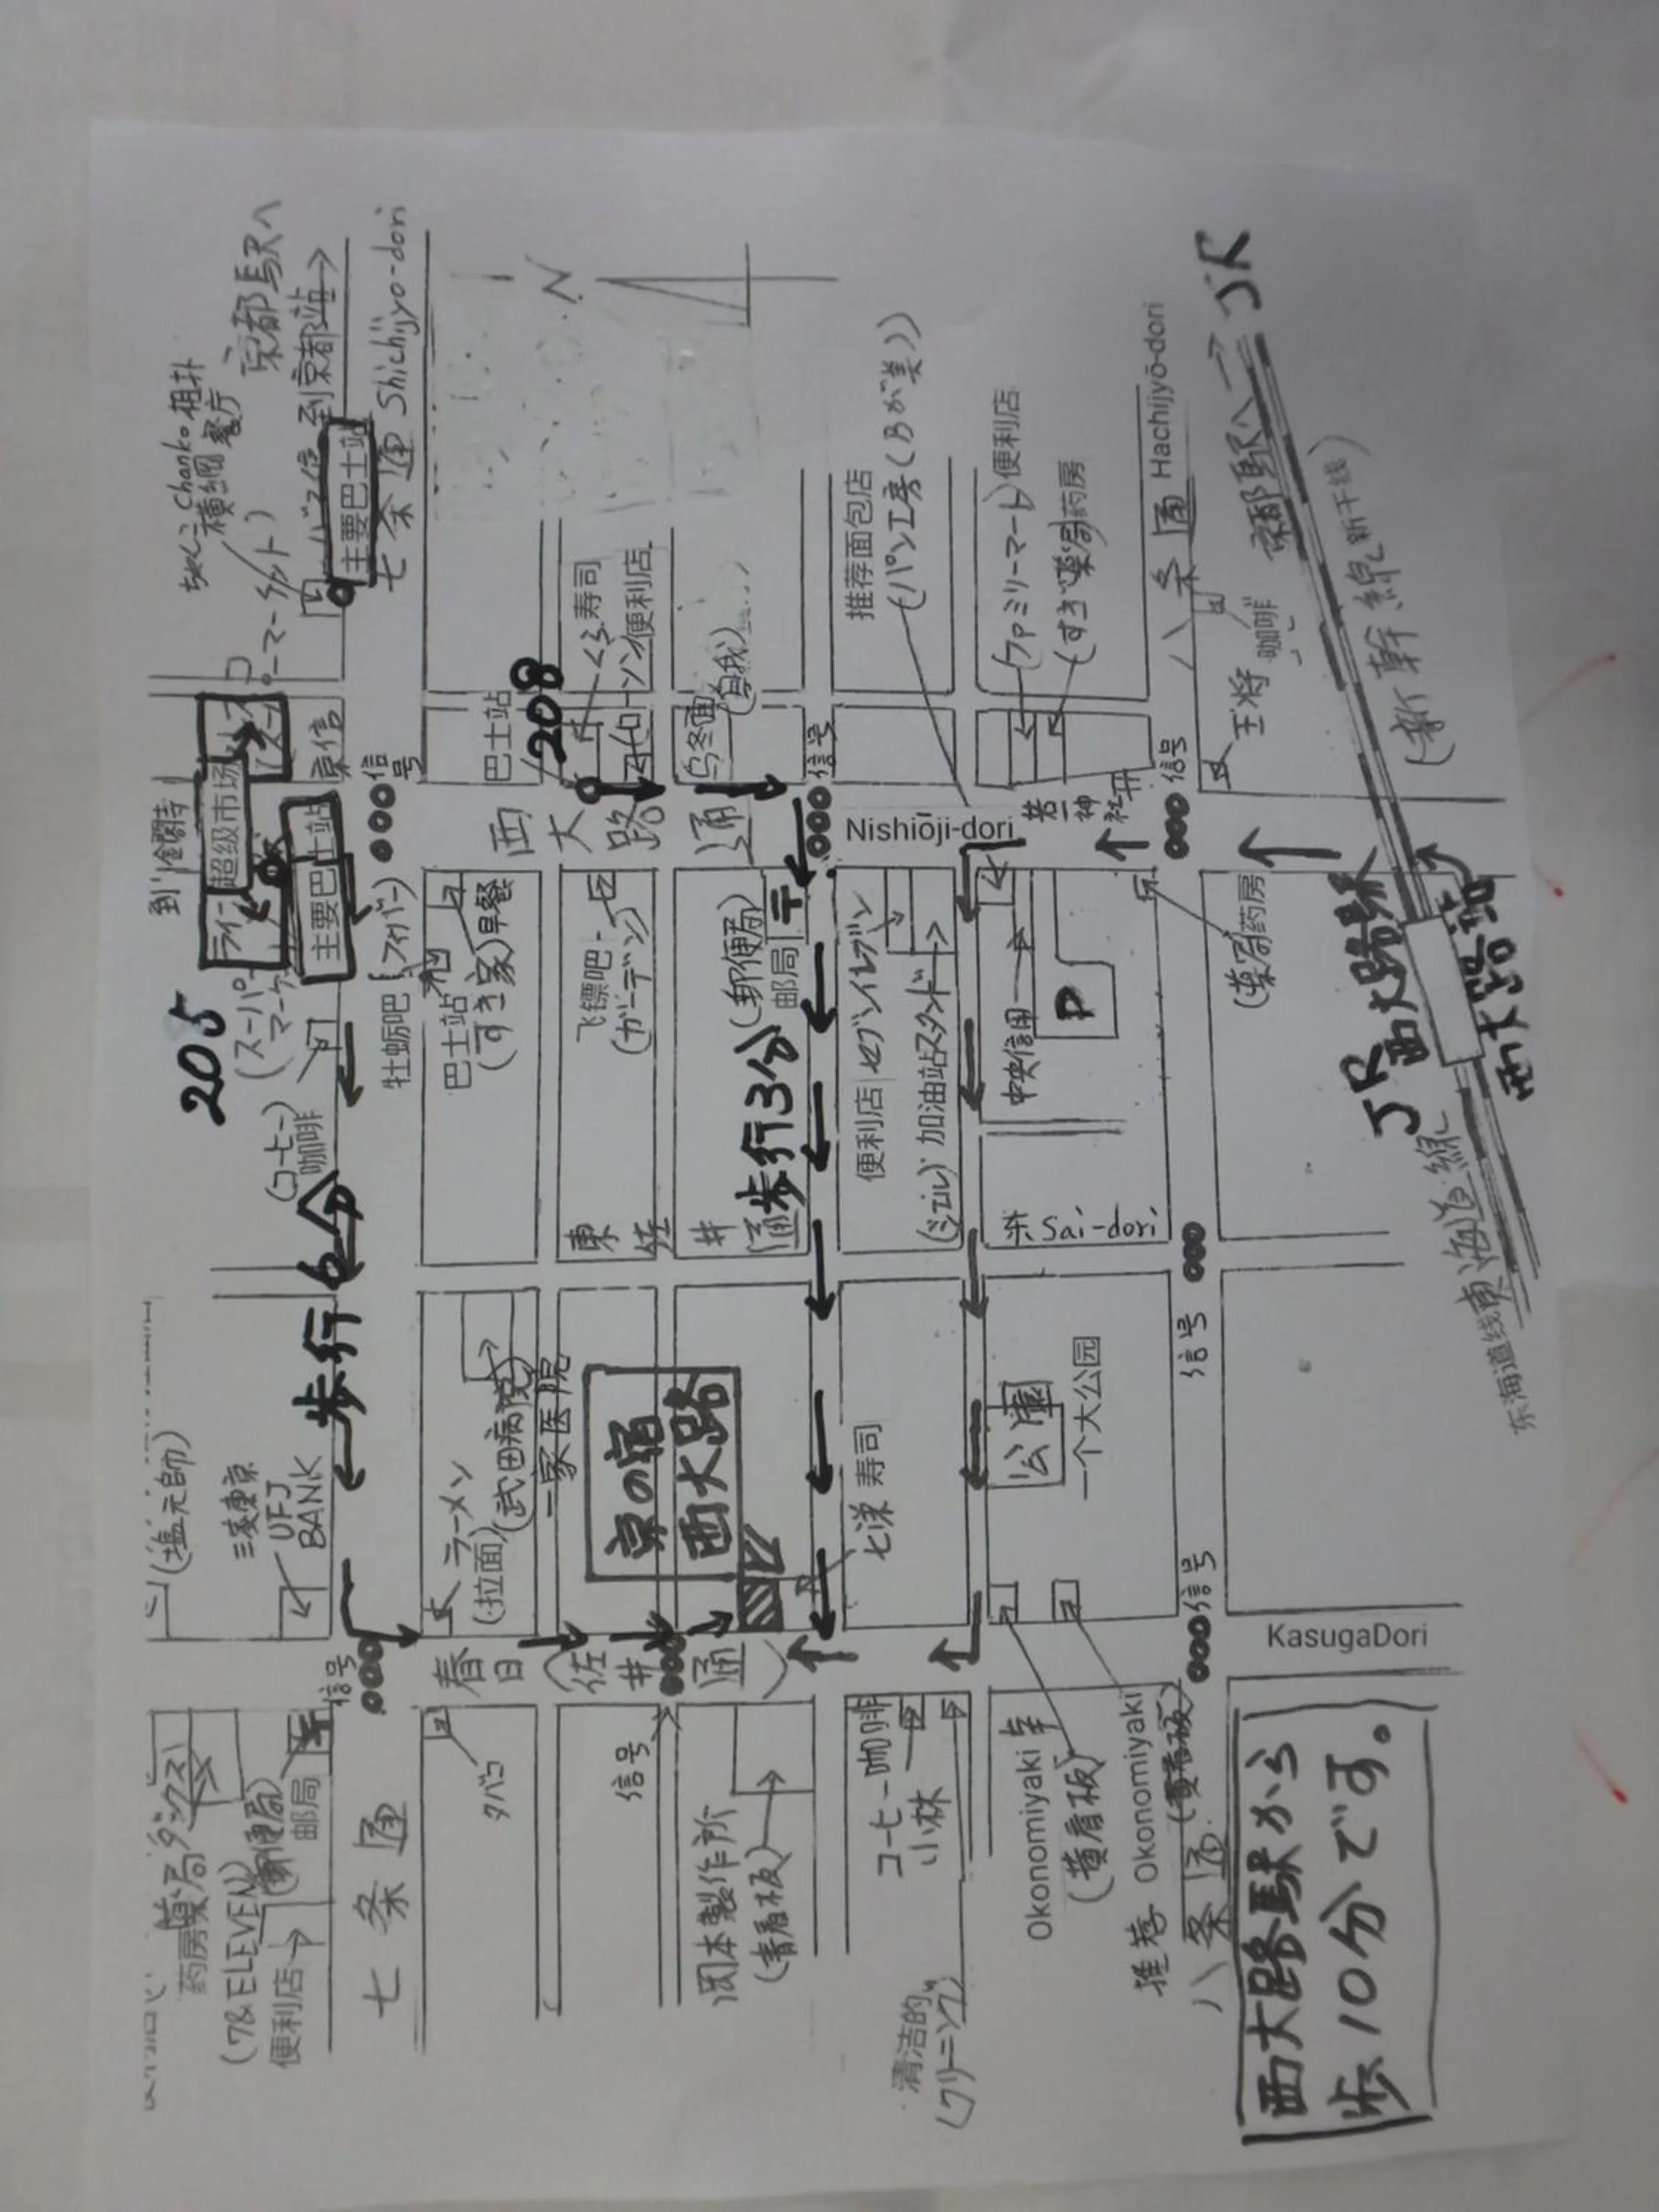 ちゃんこ Chanko 相扑
横綱 餐厅
京都駅へ
到京都站
主要巴士站
七条通 Shichijyo-dori
N
到金閣寺
超级市场
ライフ
主要巴士站
205
(スーパーマーケット)
(コーヒー)
咖啡
歩行6分
信号
牡蛎吧
巴士站
(すき家)早餐
巴士站
208
くら寿司
便利店
乌冬面
西大路通
信号
飞镖吧
(ガーデン)
(郵便局)
邮局
〒
歩行3分
東佐井通
推荐面包店
(パン工房
Nishiōji-dori
便利店 セブンイレブン
加油站
中央信用
P
(ファミリーマート)便利店
药房
若一神社
信号
八条通 Hachijyō-dori
王将
咖啡
京都駅へ → JR
(新幹線 新干线)
(薬局)药房
JR西大路駅
西大路站
東海道線
东海道线
Sai-dori
信号
(塩元帥)
三菱東京
UFJ
BANK
ラーメン
(拉面)
(武田病院)
一家医院
京の宿
西大路
七栄 寿司
公園
一个大公园
信号
KasugaDori
春日(佐井通)
信号
信号
薬局
药房
(7&ELEVEN)
便利店
(郵便局)
邮局
七条通
タバコ
岡本製作所
(青看板)
コーヒー 咖啡
小林
清洁的
(クリーニング)
Okonomiyaki 幸
(黄看板)
推荐 Okonomiyaki
(黄看板)
八条通
西大路駅から
歩10分です。